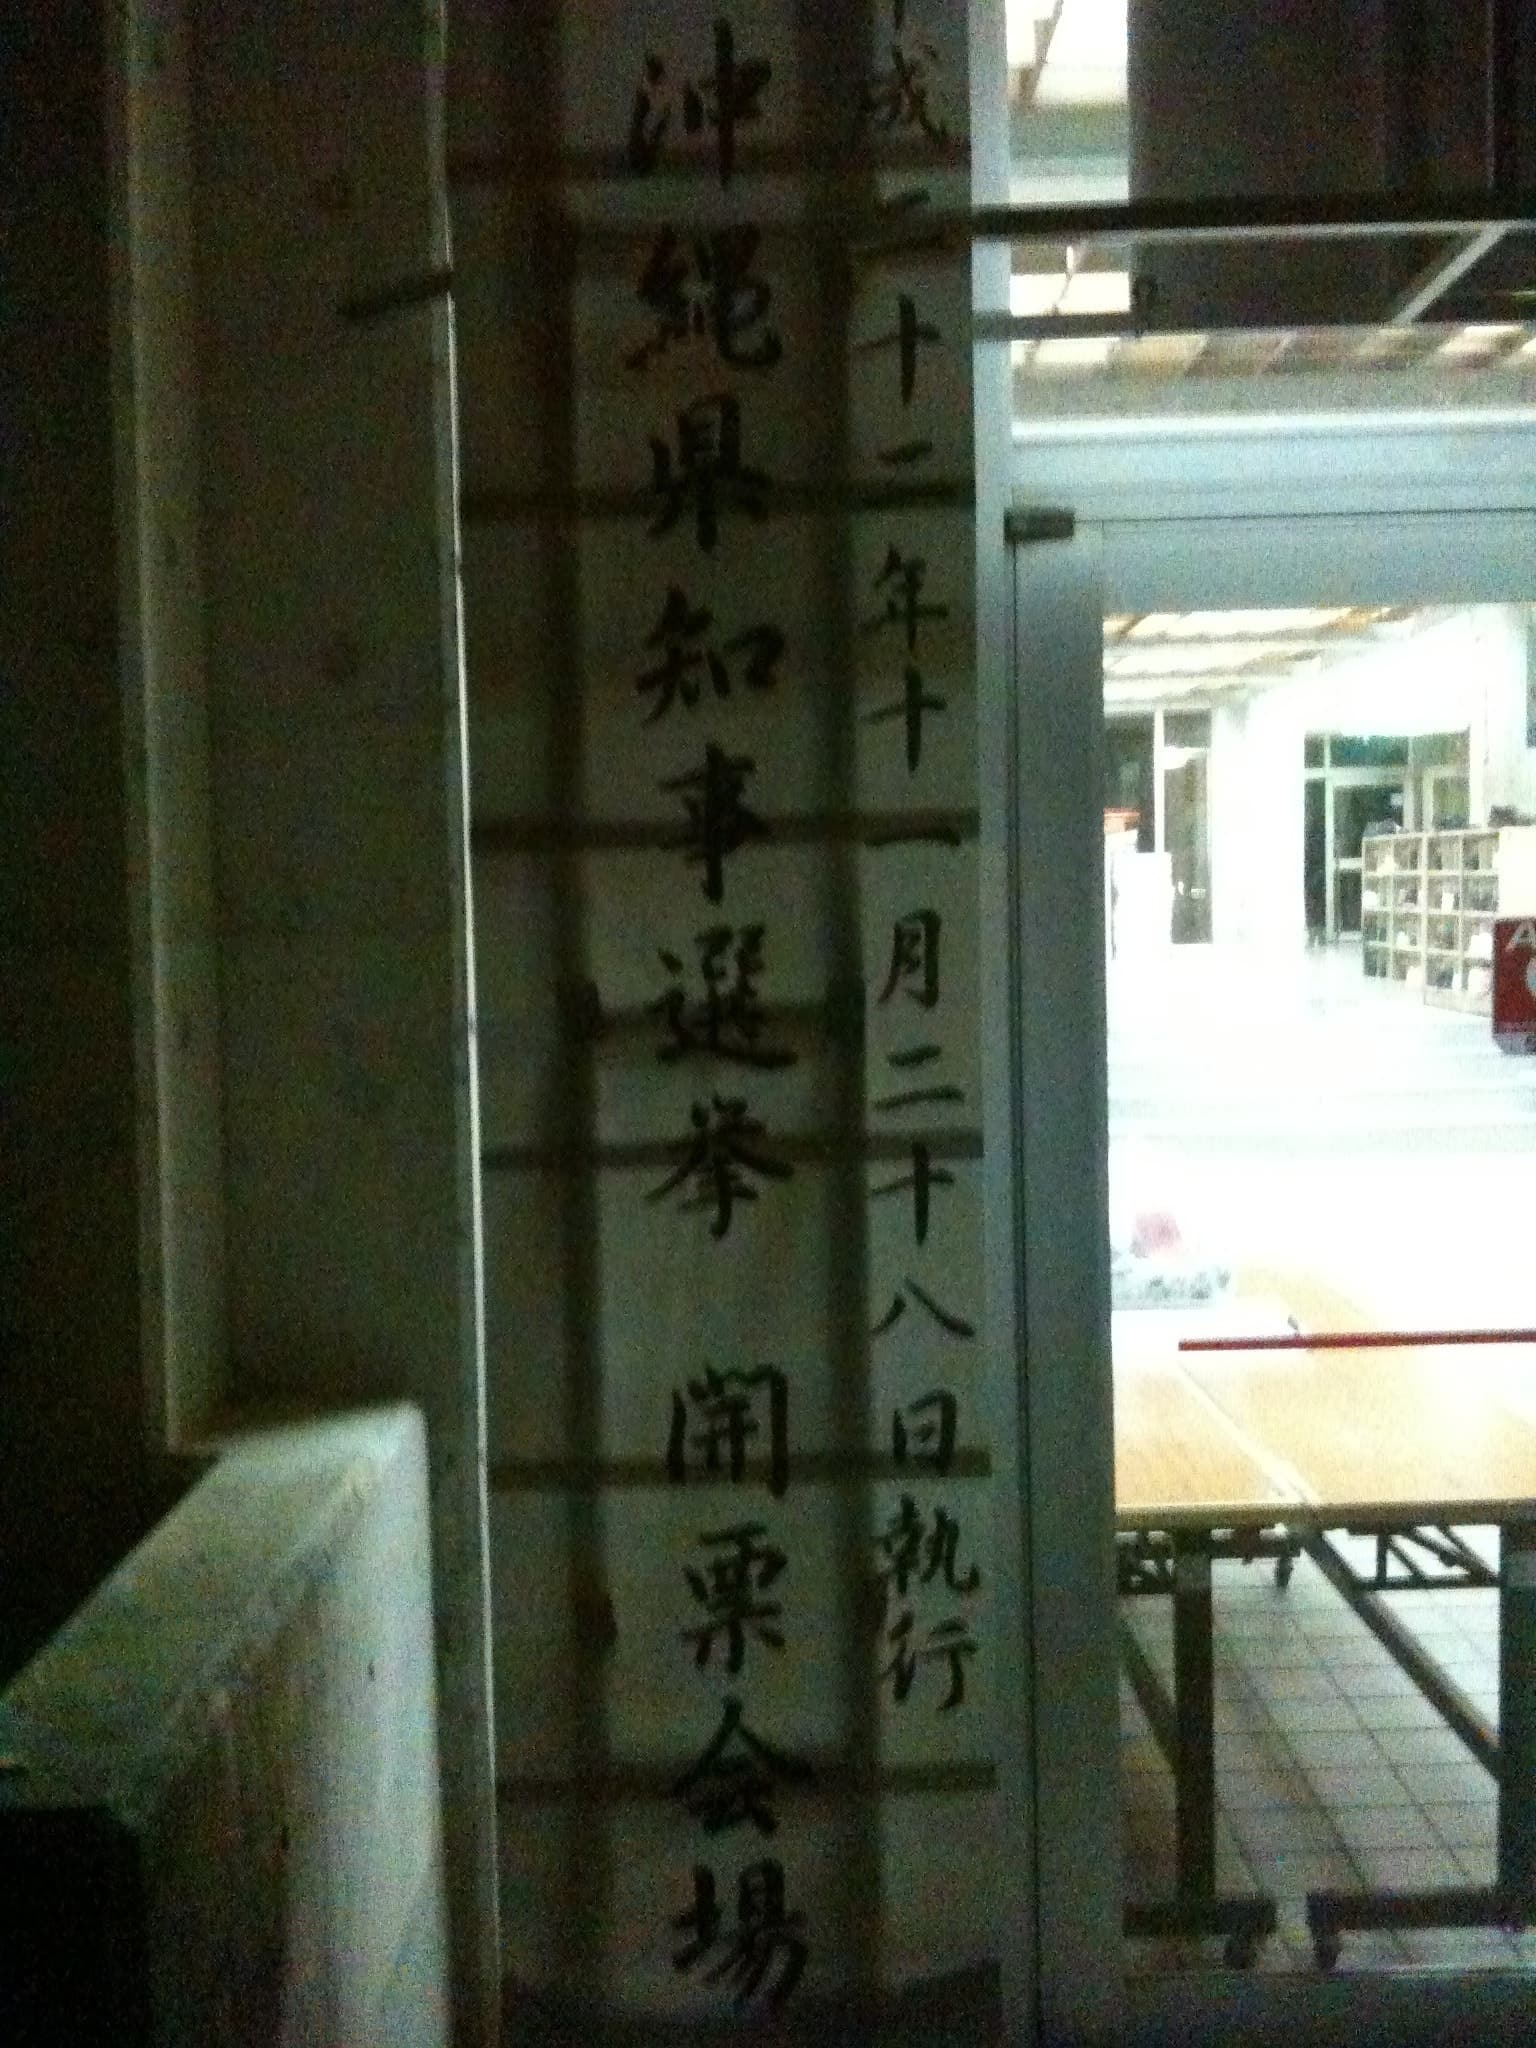 平成二十二年十一月二十八日執行
沖縄県知事選挙 開票会場
A